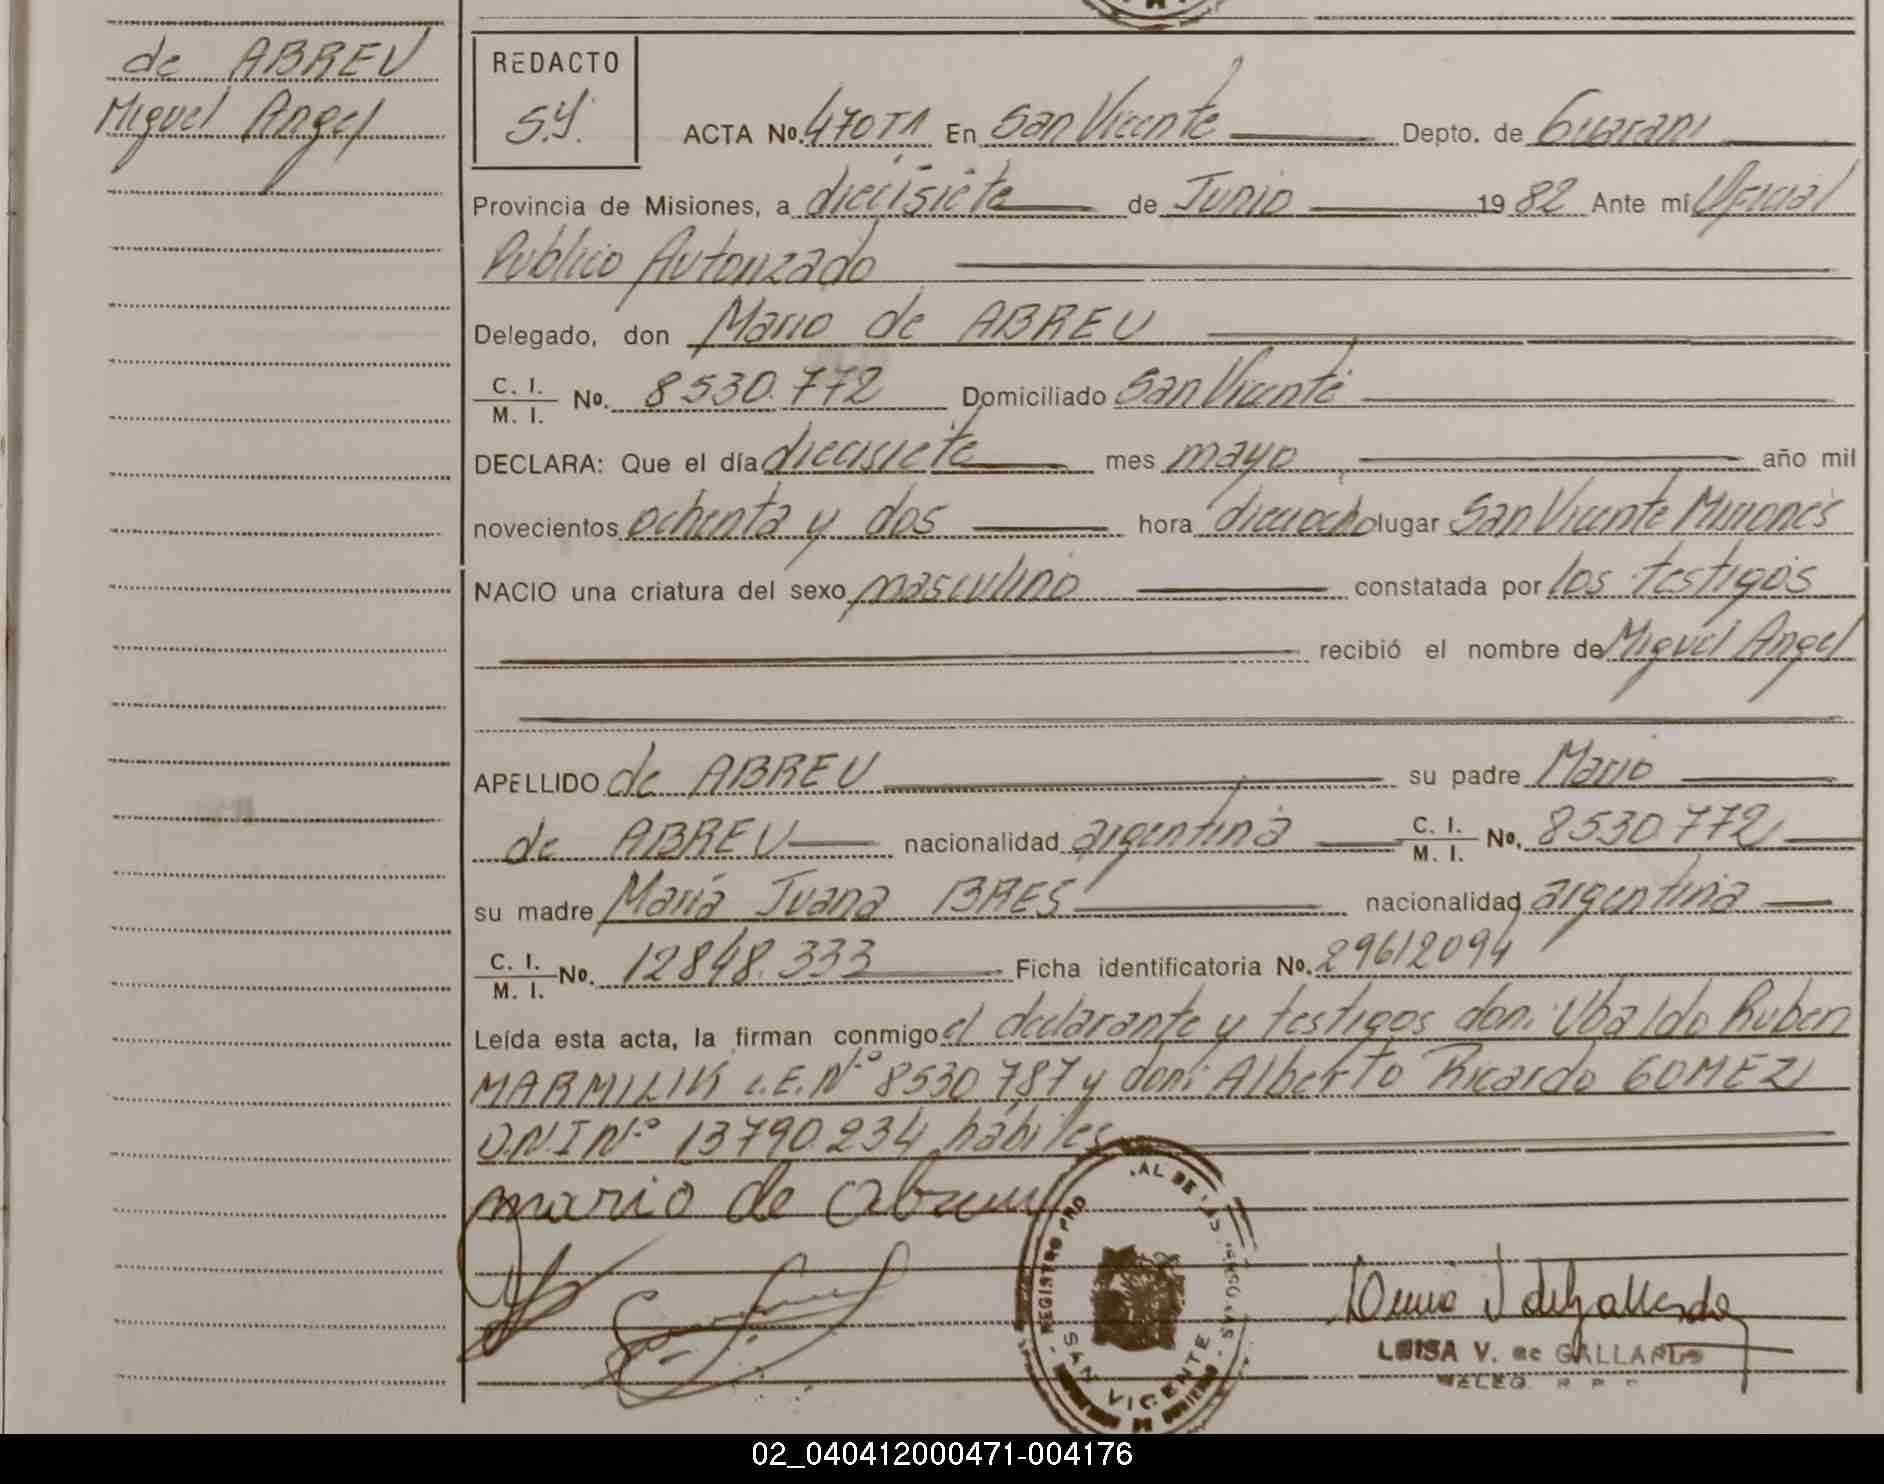 de ABREU
Miguel Angel
REDACTO
S.Y.
ACTA No. 470T1 En San Vicente Depto. de Guarani
Provincia de Misiones, a diecisiete de Junio 1982 Ante mí Oficial
Publico Autorizado
Delegado, don Mario de ABREU
C. I. / M. I. No. 8530.772 Domiciliado San Vicente
DECLARA: Que el día diecisiete mes mayo año mil
novecientos ochenta y dos hora dieciocho lugar San Vicente Misiones
NACIO una criatura del sexo masculino constatada por los testigos
recibió el nombre de Miguel Angel
APELLIDO de ABREU su padre Mario
de ABREU nacionalidad argentina C. I. / M. I. No. 8530.772
su madre María Juana BRES nacionalidad argentina
C. I. / M. I. No. 12848.333 Ficha identificatoria No. 29612094
Leída esta acta, la firman conmigo el declarante y testigos don: Ubaldo Ruben
L.E. Nº 8530787 y don: Alberto Ricardo GOMEZ
D.N.I Nº 13790.234 hábiles
mario de abreu
REGISTRO PRO AL DE LAS PERSONAS
SAN VICENTE
LUISA V. de GALLARDO
DELEG. R. P.
02_040412000471-004176